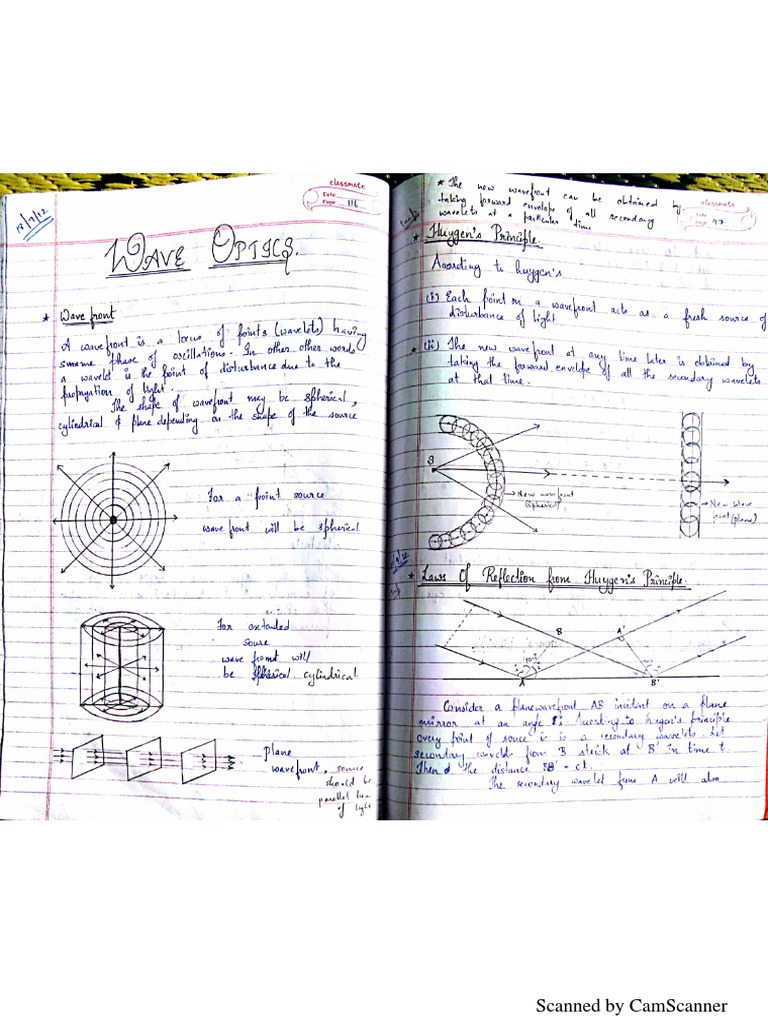 classmate
Date
Page 116
12/9/22
WAVE OPTICS.
★ Wave front
A wavefront is a locus of points (wavelets) having
smame phase of oscillations. In other other words
a wavelet is the point of disturbance due to the
propagation of light.
The shape of wavefront may be spherical,
cylindrical & plane depending on the shape of the source
For a point source
wave front will be spherical
For extended
soure
wave front will
be spherical cylindrical
Plane
wavefront, source
should be
parallel
of light
★ The new wavefront can be obtained by
taking forward envelope of all secondary
wavelets at a particular time
classmate
Date
Page
★ Huygen's Principle.
Acording to huygen's
(i) Each point on a wavefront acts as a fresh source of
disturbance of light
★ (ii) The new wavefront at any time later is obtained by
taking the forward envelope of all the secondary wavelets
at that time.
S
New wavefront
(spherical)
New wave
front (plane)
★ Laws Of Reflection from Huygen's Principle.
B
A'
A
B'
Consider a plane wavefront AB incident on a plane
mirror at an angle i. According to huygen's principle
every point of souce is a secondary wavelets. Let
secondary wavelet from B strick at B' in time t.
Then the distance BB' = ct.
The secondary wavelet from A will also
Scanned by CamScanner